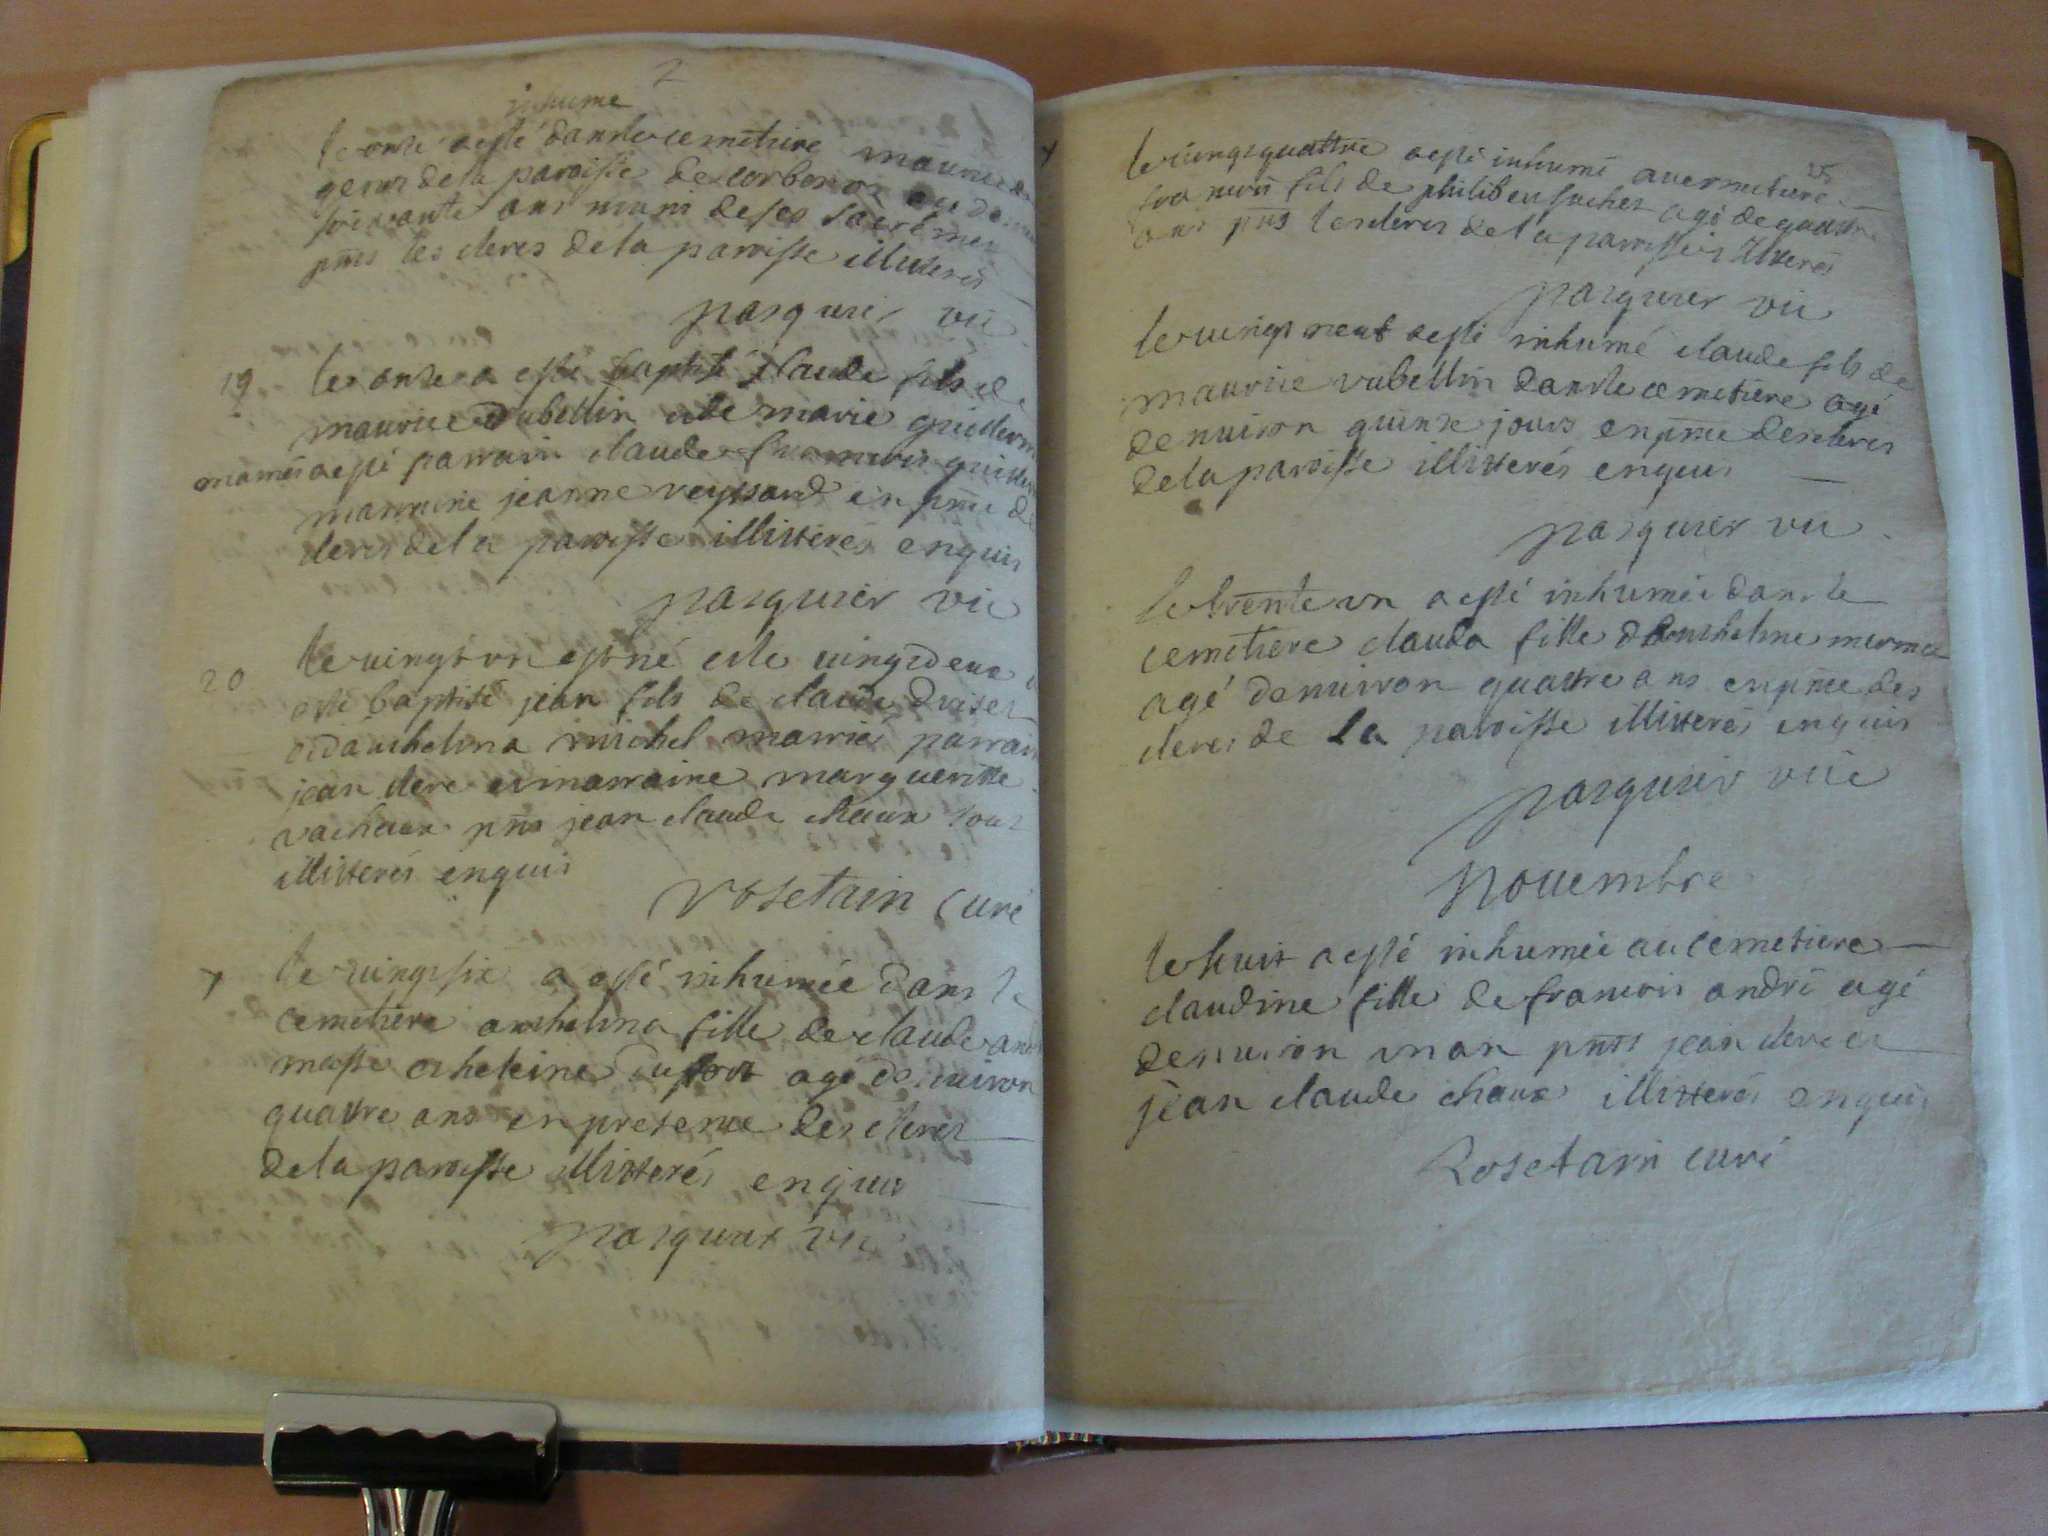 inhume
le onze a esté dans le cemetiere maurice
de la paroisse de corbonod
soixante ans muni de ses sacremens
pnts les clercs de la paroisse illitterés
pasquier vic
19 le onze a esté baptisé claude fils de
maurice Dubettin et de marie guillerm
mariés a esté parrain claude francois
marraine jeanne veyssand en pnce de
clercs de la paroisse illitterés enquis
pasquier vic
20 le vingt un est né et le vingt deux a
esté baptisé jean fils de claude
et danthelma michel mariés parrain
jean clerc et marraine margueritte
vacheux pnts jean claude chaux tous
illitterés enquis
Rosetain curé
le vingt six a esté inhumée dans le
cemetiere anthelma fille de claude
masse et heleine dufour agé denuiron
quattre ans en presence des clercs
de la paroisse illitterés enquis
pasquier vic
le vingt quattre a esté inhumé au cemetiere
francois fils de philibert agé de quattre
ans pnts les clercs de la paroisse illitterés
pasquier vic
le vingt neuf a esté inhumé claude fils de
maurice dubettin dans le cemetiere agé
denuiron quinze jours en pnce des clercs
de la paroisse illitterés enquis
pasquier vic
le trente un a esté inhumée dans le
cemetiere clauda fille danthelme
agé denuiron quattre ans en pnce des
clercs de la paroisse illitterés enquis
pasquier vic
Nouembre
le huit a esté inhumée au cemetiere
claudine fille de francois andré agé
denuiron un an pnts jean clerc et
jean claude chaux illitterés enquis
Rosetain curé